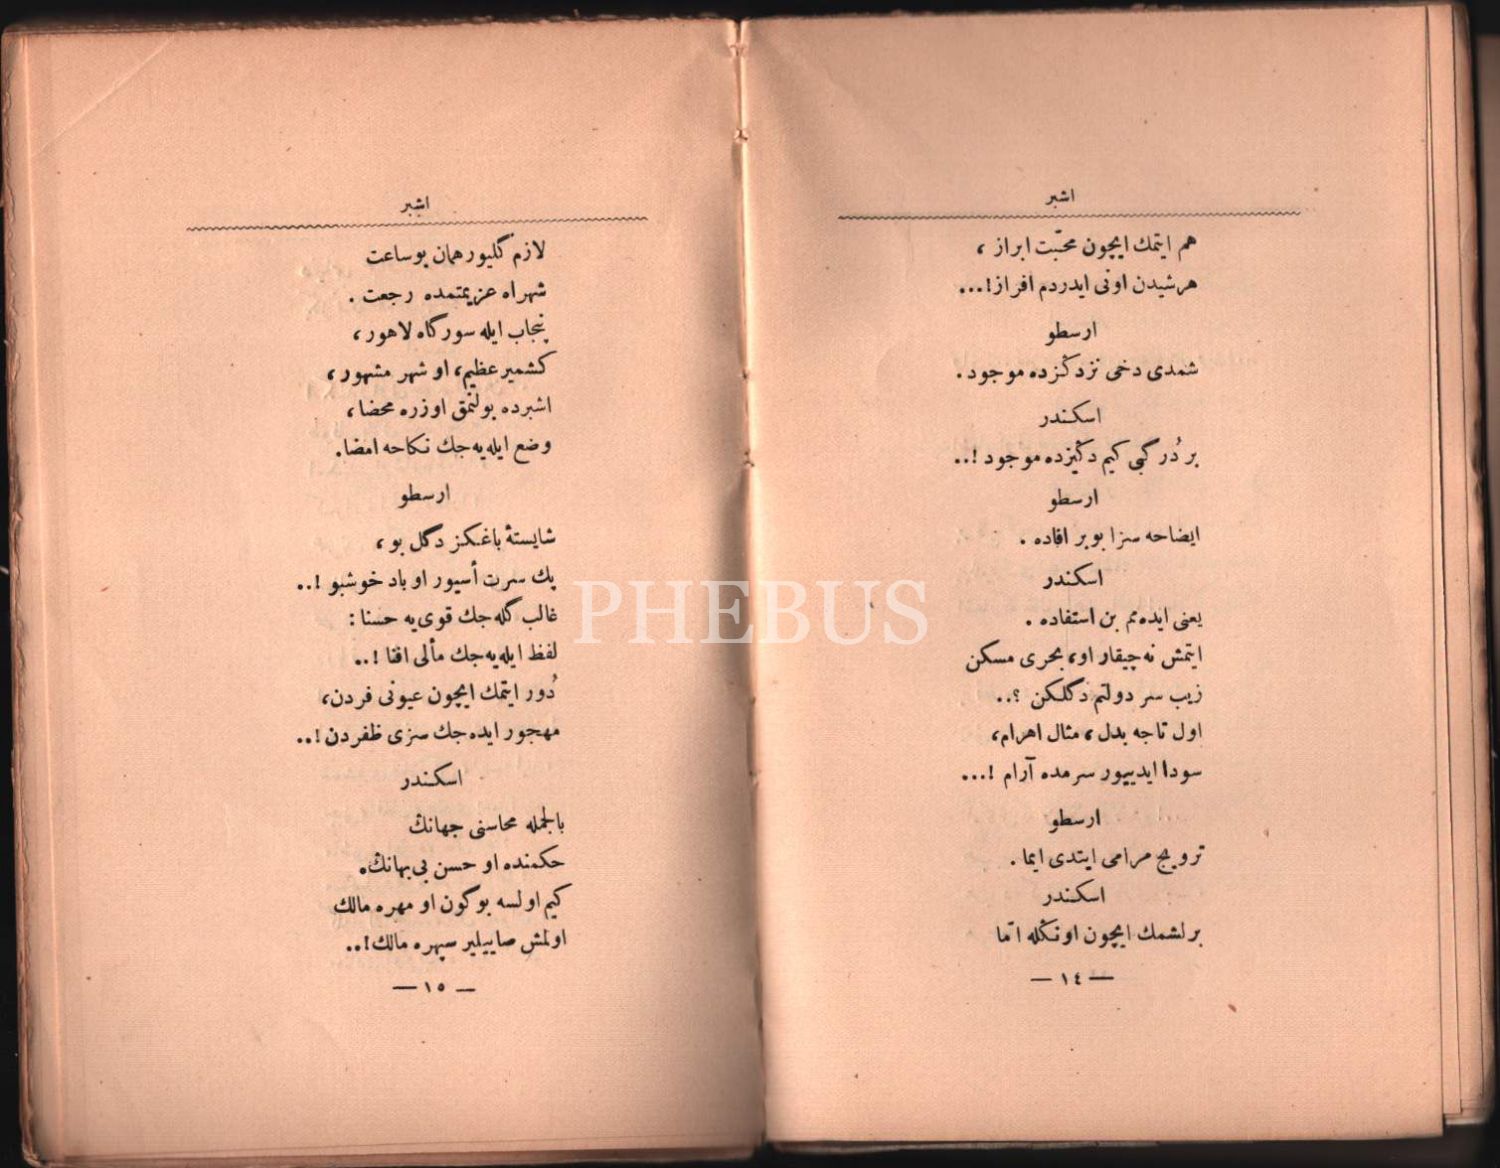 اشبر
هم ايتمك ايچون محبّت ابراز ،
هرشيدن اونى ايدردم افراز!...
ارسطو
شمدى دخى نزدكزده موجود .
اسكندر
بر دُر گبى كيم دكيزده موجود !..
ارسطو
ايضاحه سزا بو بر افاده .
اسكندر
يعنى ايده‌مم بن استفاده .
ايتمش نه چيقار او، بحرى مسكن
زيب سر دولتم دگلكن ؟..
اول تاجه بدل ، مثال اهرام،
سودا ايدييور سرمده آرام !...
ارسطو
ترويج مرامى ايتدى ايما .
اسكندر
برلشمك ايچون اونكله اتما
— ١٤ —
اشبر
لازم گليور همان بو ساعت
شهراه عزيمتمده رجعت .
پنجاب ايله سورگاه لاهور،
كشمير عظيم، او شهر مشهور ،
اشبرده بولنمق اوزره محضا ،
وضع ايله‌يه‌جك نكاحه امضا.
ارسطو
شايستهٔ باغكز دگل بو ،
پك سرت أسيور او باد خوشبو !..
غالب گله‌جك قوى‌يه حسنا :
لفظ ايله‌يه‌جك مألى افنا !..
دُور ايتمك ايچون عيونى فردن،
مهجور ايده‌جك سزى ظفردن !..
اسكندر
بالجمله محاسنى جهانك
حكمنده او حسن بى‌بهانك.
كيم اولسه بوگون او مهره مالك
اولمش صاييلير سپهره مالك!..
— ١٥ —
PHEBUS